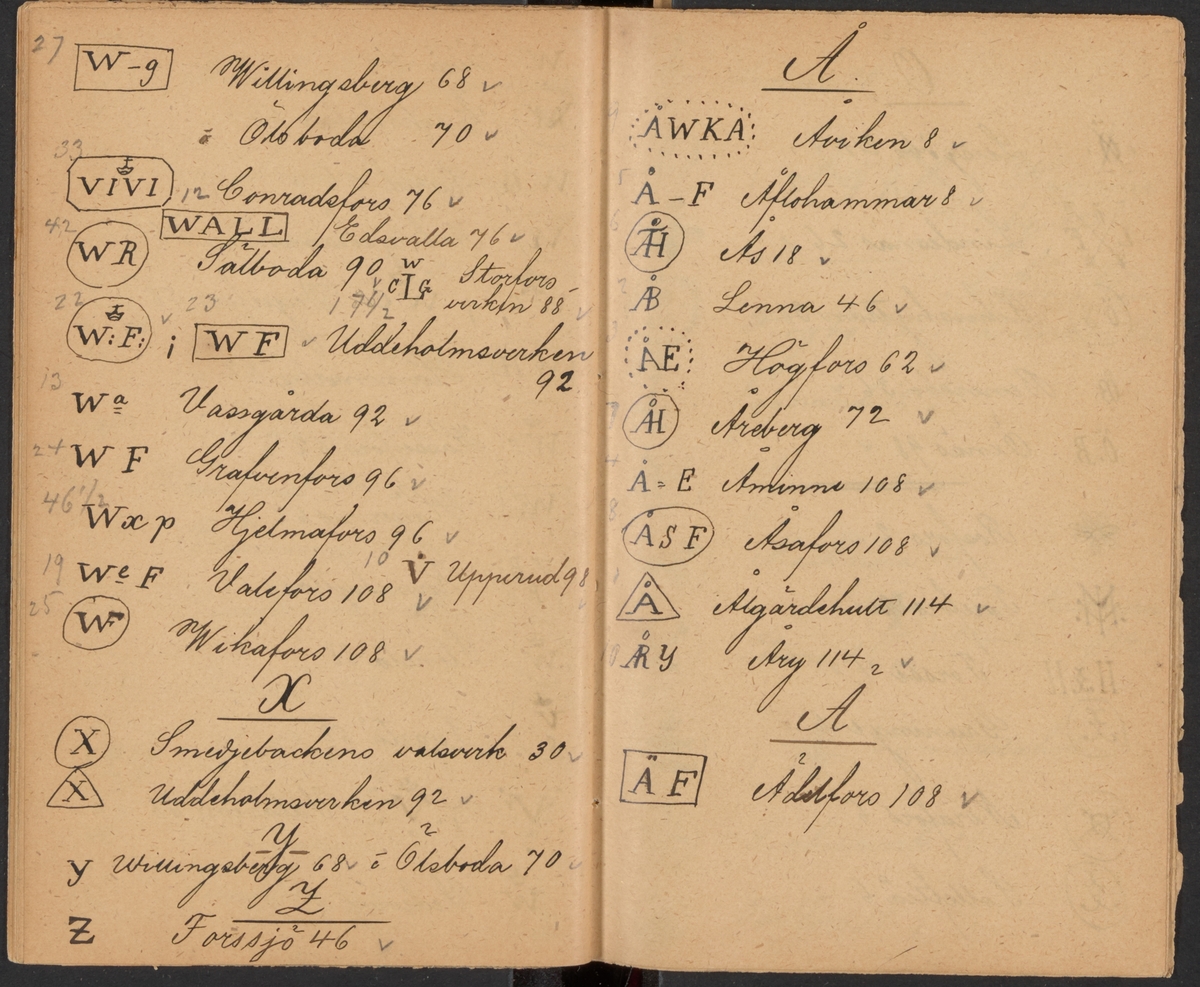 27
W-g Willingsberg 68 ✓
" Ölsboda 70 ✓
33
VIVI 12 Conradsfors 76 ✓
WALL Edsvalla 76 ✓
42
WR Sälboda 90 ✓
W CLG Storfors-
verken 88 ✓
22 23 17 1/2
W:F: ✓ i WF ✓ Uddeholmsverken
92
13
Wa Vassgårda 92 ✓
24 WF Grafvenfors 96 ✓
46 1/2
Wxp Hjelmafors 96 ✓
19 We F Valefors 108 ✓ 10 V Upperud 98
25
W Wikafors 108 ✓
X
X Smedjebackens valsverk 30 ✓
X Uddeholmsverken 92 ✓
Y
y Willingsberg 68 ✓ Ölsboda 70 ✓
Z
Z Forssjö 46 ✓
Å
ÅWKA Åviken 8 ✓
Å-F Åflohammar 8 ✓
ÅH Ås 18 ✓
ÅB Lenna 46 ✓
ÅE Högfors 62 ✓
ÅH Åreberg 72 ✓
Å=E Åminne 108 ✓
ÅSF Åsafors 108 ✓
Å Ålgårdehult 114 ✓
ÅRY Åry 114 2 ✓
Ä
ÄF Ädelfors 108 ✓